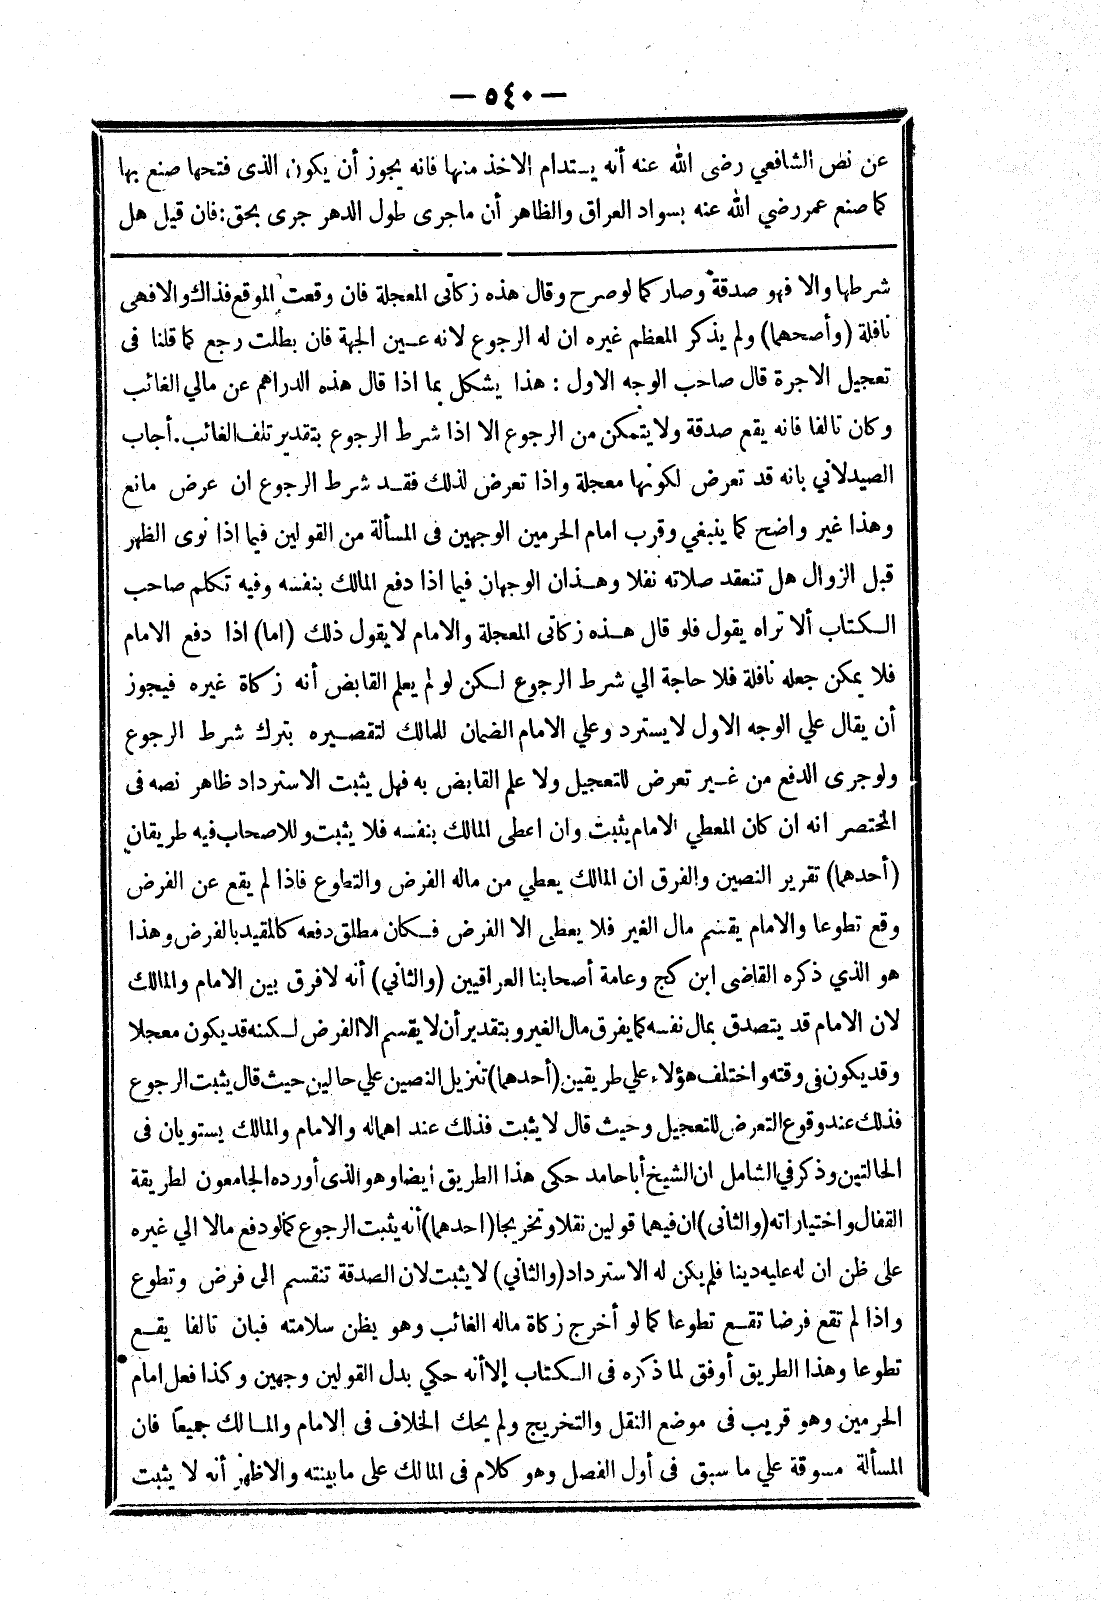 — ٥٤٠ —
عن نص الشافعي رضى الله عنه أنه يستدام الاخذ منها فانه يجوز أن يكون الذى فتحها صنع بها
كما صنع عمر رضي الله عنه بسواد العراق والظاهر أن ماجرى طول الدهر جرى بحق: فان قيل هل
شرطها والا فهو صدقة وصار كما لو صرح وقال هذه زكاتى المعجلة فان وقعت الموقع فذاك والا فهى
نافلة (وأصحهما) ولم يذكر المعظم غيره ان له الرجوع لانه عين الجهة فان بطلت رجع كما قلنا فى
تعجيل الاجرة قال صاحب الوجه الاول : هذا يشكل بما اذا قال هذه الدراهم عن مالي الغائب
وكان تالفا فانه يقع صدقة ولا يتمكن من الرجوع الا اذا شرط الرجوع بتقدير تلف الغائب. أجاب
الصيدلاني بانه قد تعرض لكونها معجلة واذا تعرض لذلك فقد شرط الرجوع ان عرض مانع
وهذا غير واضح كما ينبغي وقرب امام الحرمين الوجهين فى المسألة من القولين فيما اذا نوى الظهر
قبل الزوال هل تنعقد صلاته نفلا وهذان الوجهان فيما اذا دفع المالك بنفسه وفيه تكلم صاحب
الكتاب ألا تراه يقول فلو قال هذه زكاتى المعجلة والامام لا يقول ذلك (اما) اذا دفع الامام
فلا يمكن جعله نافلة فلا حاجة الي شرط الرجوع لكن لو لم يعلم القابض أنه زكاة غيره فيجوز
أن يقال علي الوجه الاول لا يسترد وعلي الامام الضمان للمالك لتقصيره بترك شرط الرجوع
ولو جرى الدفع من غير تعرض للتعجيل ولا علم القابض به فهل يثبت الاسترداد ظاهر نصه فى
المختصر انه ان كان المعطي الامام يثبت وان اعطى المالك بنفسه فلا يثبت وللاصحاب فيه طريقان
(أحدهما) تقرير النصين والفرق ان المالك يعطي من ماله الفرض والتطوع فاذا لم يقع عن الفرض
وقع تطوعا والامام يقسم مال الغير فلا يعطى الا الفرض فكان مطلق دفعه كالمقيد بالفرض وهذا
هو الذي ذكره القاضى ابن كج وعامة أصحابنا العراقيين (والثاني) أنه لا فرق بين الامام والمالك
لان الامام قد يتصدق بمال نفسه كما يفرق مال الغير وبتقدير أن لا يقسم الا الفرض لكنه قد يكون معجلا
وقد يكون فى وقته واختلف هؤلاء علي طريقين (أحدهما) تنزيل النصين علي حالين حيث قال يثبت الرجوع
فذلك عند وقوع التعرض للتعجيل وحيث قال لا يثبت فذلك عند اهماله والامام والمالك يستويان فى
الحالتين وذكر في الشامل ان الشيخ أبا حامد حكى هذا الطريق ايضا وهو الذى أورده الجامعون لطريقة
القفال واختياراته (والثانى) ان فيهما قولين نقلا وتخريجا (احدهما) أنه يثبت الرجوع كما لو دفع مالا الي غيره
على ظن ان له عليه دينا فلم يكن له الاسترداد (والثاني) لا يثبت لان الصدقة تنقسم الى فرض وتطوع
واذا لم تقع فرضا تقع تطوعا كما لو أخرج زكاة ماله الغائب وهو يظن سلامته فبان تالفا يقع
تطوعا وهذا الطريق أوفق لما ذكره فى الكتاب إلا أنه حكي بدل القولين وجهين وكذا فعل امام
الحرمين وهو قريب فى موضع النقل والتخريج ولم يحك الخلاف فى الامام والمالك جميعًا فان
المسألة مسوقة علي ما سبق فى أول الفصل وهو كلام فى المالك على ما بينته والاظهر أنه لا يثبت